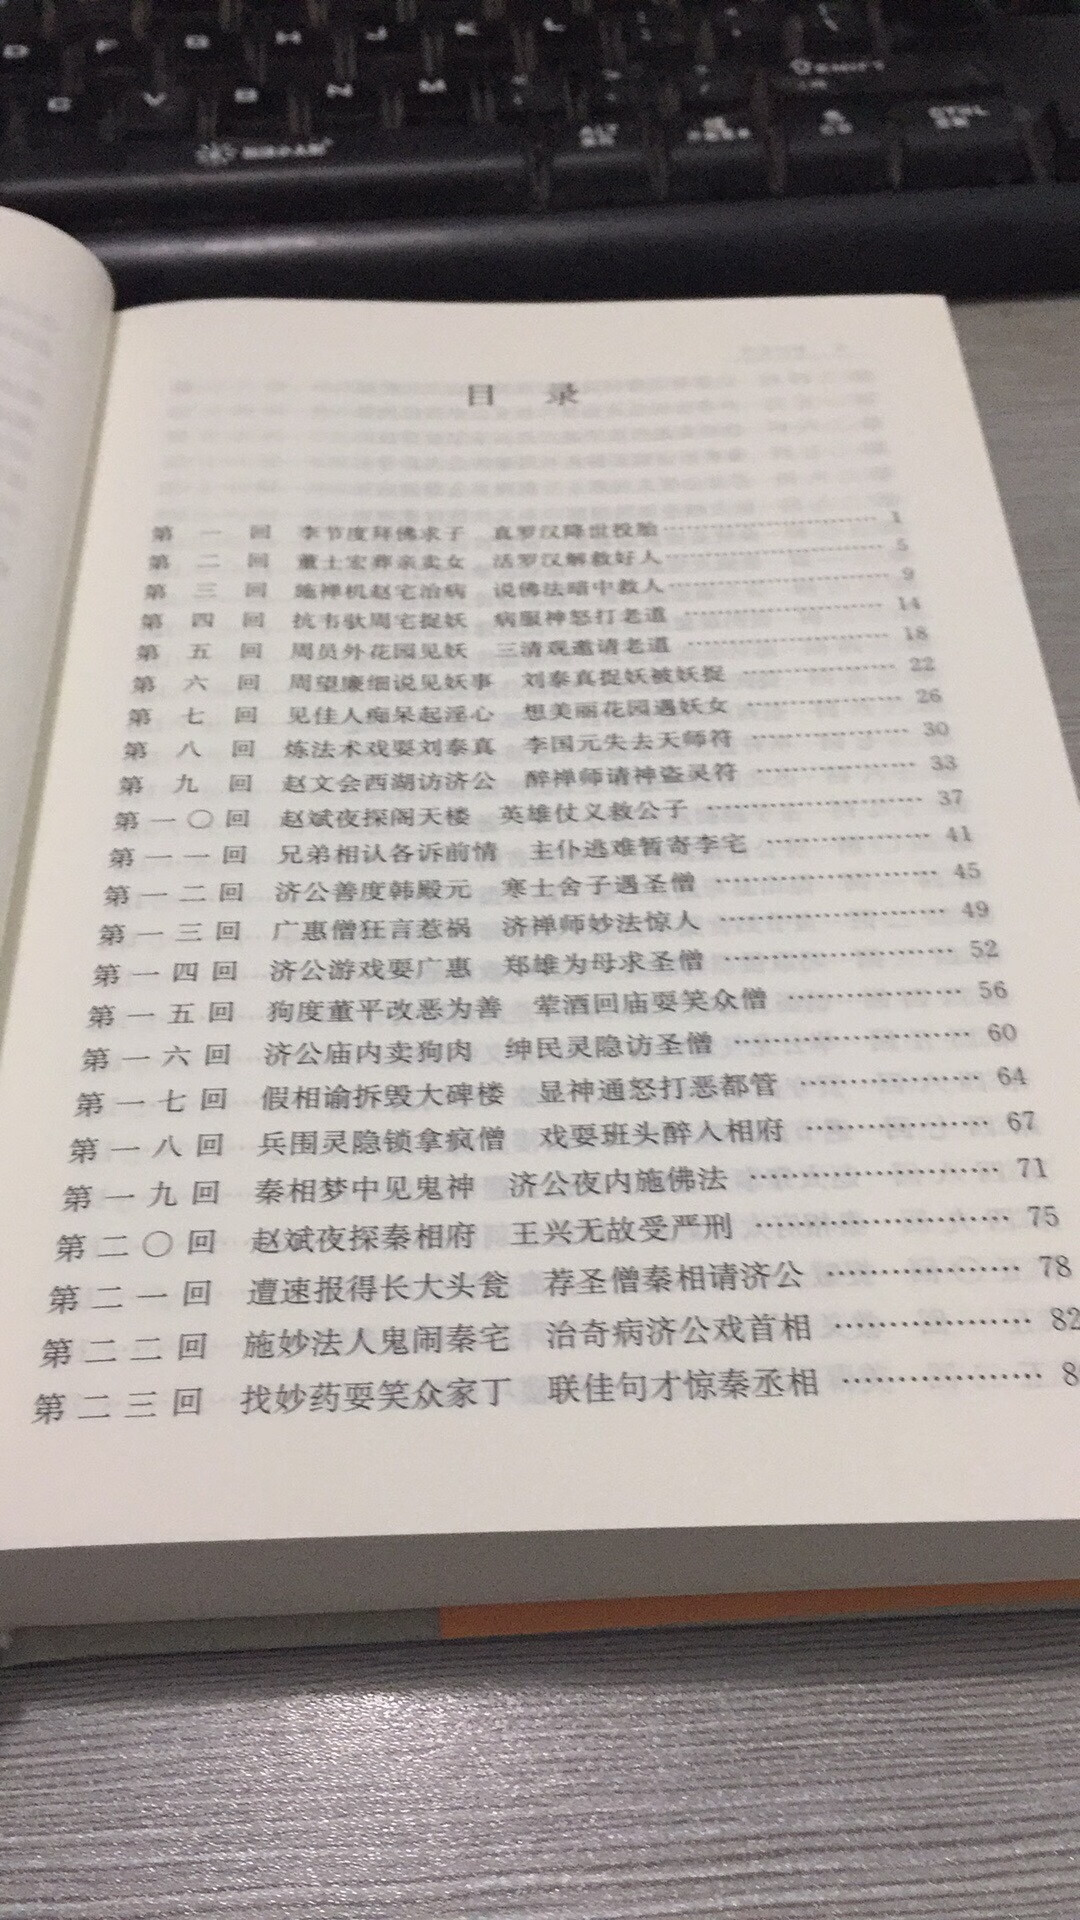 D F G H J K L
C V B N M
SHIFT
ALT
CTRL
目 录
第一回 李节度拜佛求子 真罗汉降世投胎 1
第二回 董士宏葬亲卖女 活罗汉解救好人 5
第三回 施禅机赵宅治病 说佛法暗中救人 9
第四回 抗韦驮周宅捉妖 病服神怒打老道 14
第五回 周员外花园见妖 三清观邀请老道 18
第六回 周望廉细说见妖事 刘泰真捉妖被妖捉 22
第七回 见佳人痴呆起淫心 想美丽花园遇妖女 26
第八回 炼法术戏耍刘泰真 李国元失去天师符 30
第九回 赵文会西湖访济公 醉禅师请神盗灵符 33
第一〇回 赵斌夜探阁天楼 英雄仗义救公子 37
第一一回 兄弟相认各诉前情 主仆逃难暂寄李宅 41
第一二回 济公善度韩殿元 寒士舍子遇圣僧 45
第一三回 广惠僧狂言惹祸 济禅师妙法惊人 49
第一四回 济公游戏耍广惠 郑雄为母求圣僧 52
第一五回 狗度董平改恶为善 荤酒回庙耍笑众僧 56
第一六回 济公庙内卖狗肉 绅民灵隐访圣僧 60
第一七回 假相谕拆毁大碑楼 显神通怒打恶都管 64
第一八回 兵围灵隐锁拿疯僧 戏耍班头醉入相府 67
第一九回 秦相梦中见鬼神 济公夜内施佛法 71
第二〇回 赵斌夜探秦相府 王兴无故受严刑 75
第二一回 遭速报得长大头瓮 荐圣僧秦相请济公 78
第二二回 施妙法人鬼闹秦宅 治奇病济公戏首相 82
第二三回 找妙药耍笑众家丁 联佳句才惊秦丞相 8